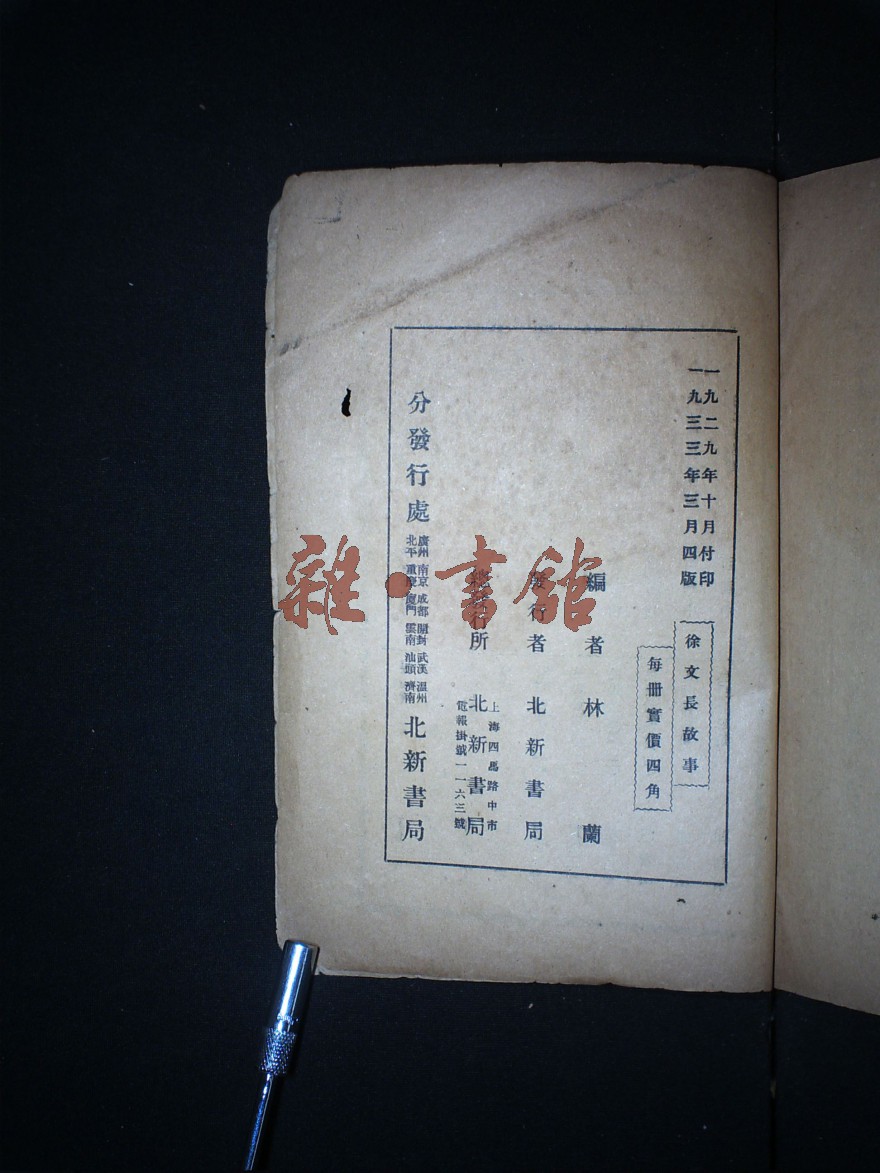 一九二九年十月付印
一九三三年三月四版
徐文長故事
每冊實價四角
編者 林蘭
發行者 北新書局
總發行所 北新書局
上海四馬路中市
電報掛號一一六三號
分發行處
廣州 南京 成都 開封 武漢 溫州
北平 重慶 廈門 雲南 汕頭 濟南
北新書局
雜·書館